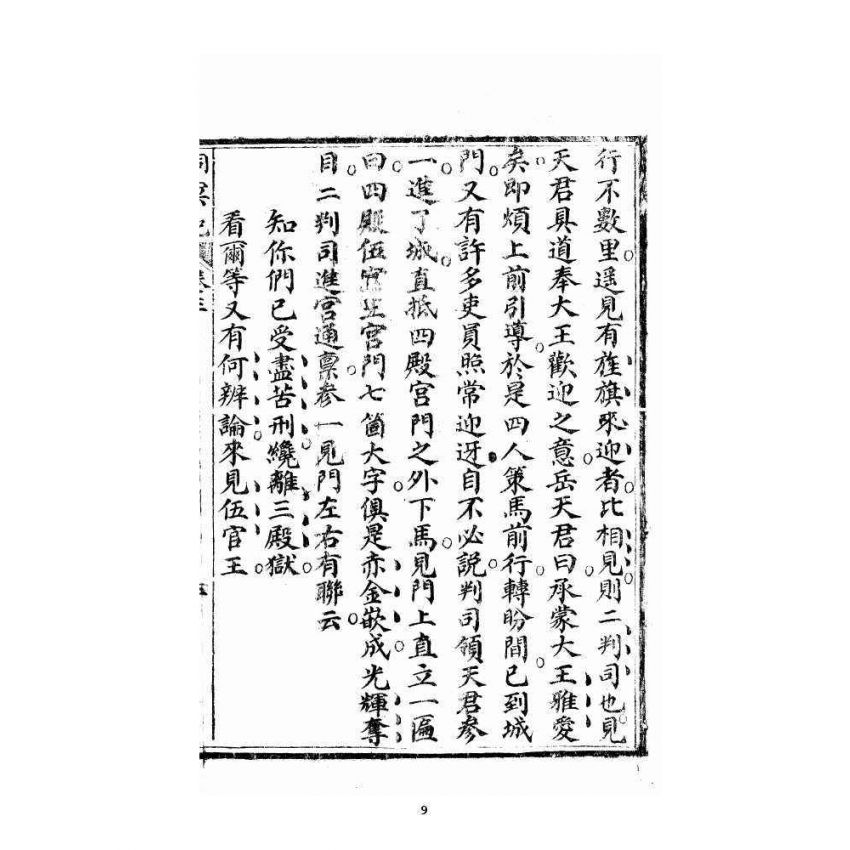 行不數里。遥見有旌旗來迎者。比相見。則二判司也。見
天君具道奉大王歡迎之意。岳天君曰。承蒙大王雅愛
矣。即煩上前引導。於是四人策馬前行。轉盼間。已到城
門。又有許多吏員照常迎迓。自不必說。判司領天君參
一。進了城。直抵四殿宮門之外下馬。見門上直立一匾。
曰。四殿伍官王宮門七箇大字。俱是赤金嵌成。光輝奪
目。二判司進宮通稟。參一見門左右有聯云。
知你們已受盡苦刑。纔離三殿獄。
看爾等又有何辨論。來見伍官王。
洞冥記 卷三
9